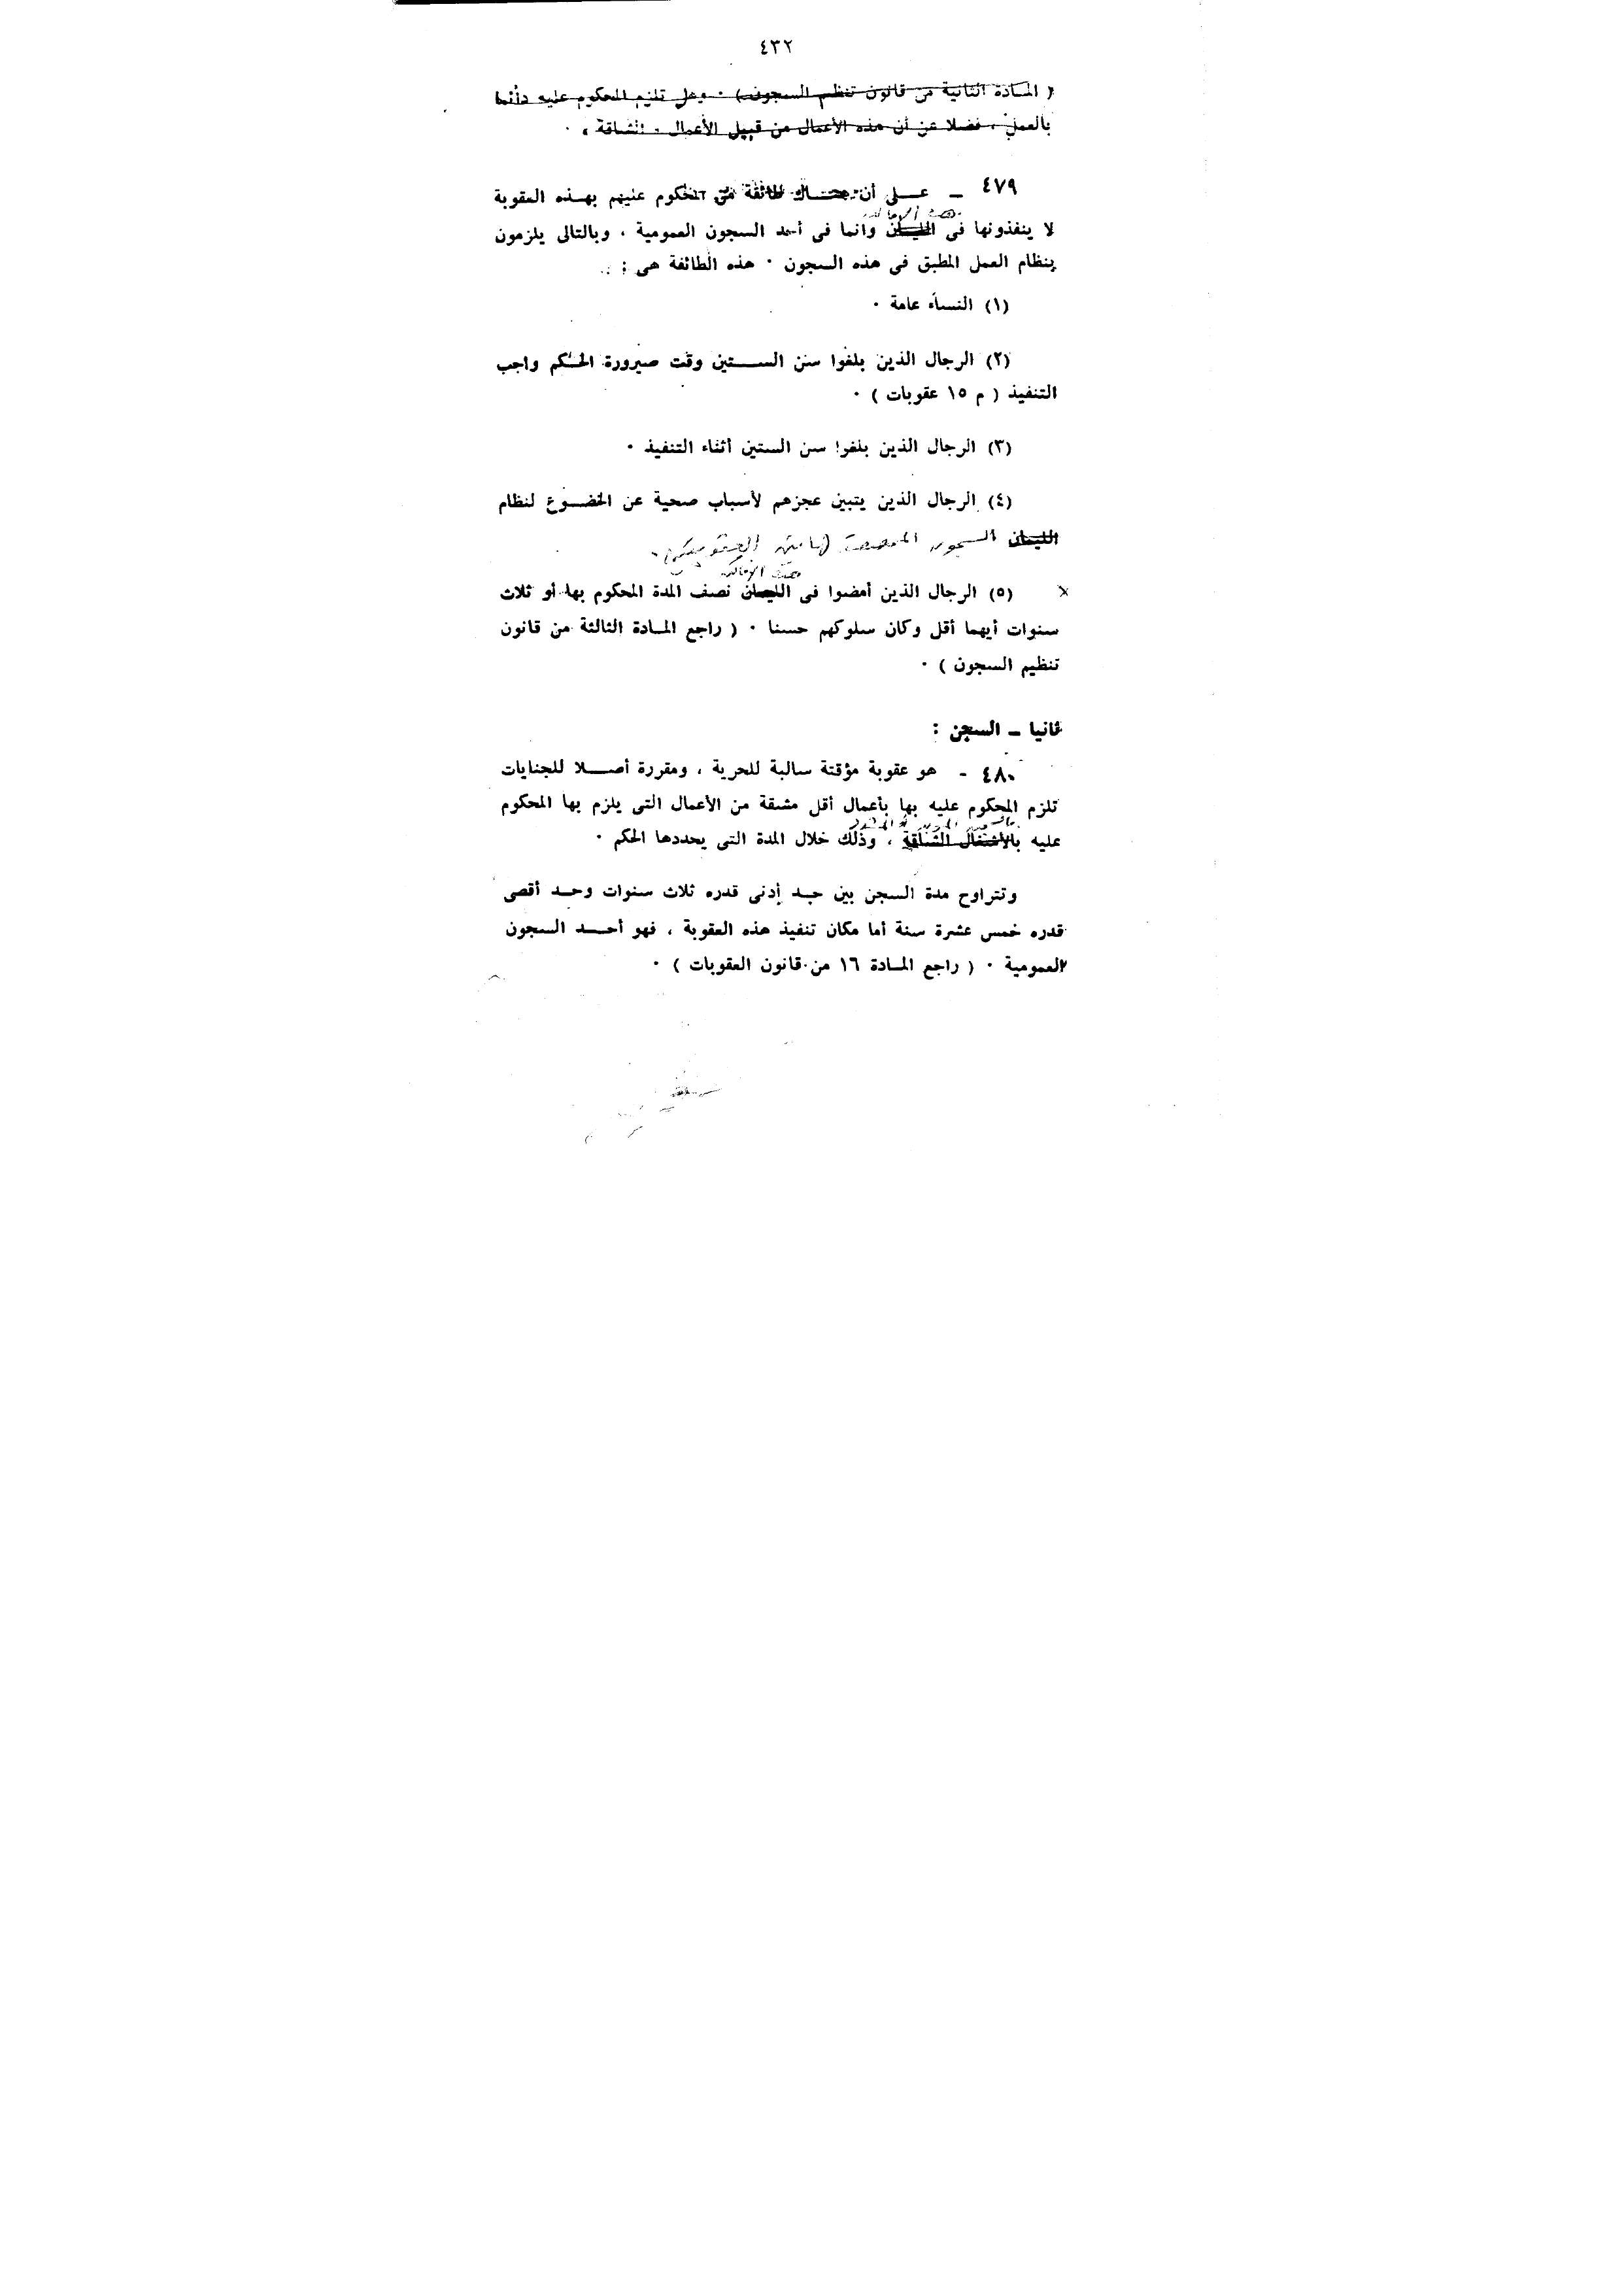 ٤٣٢
( المادة الثانية من قانون تنظيم السجون ) . وهى تلزم المحكوم عليه دائما
بالعمل ، فضلا عن أن هذه الأعمال من قبيل الأعمال الشاقة .
٤٧٩ ــ عـــلى أن هنــاك طائفة من المحكوم عليهم بهــذه العقوبة
هذه الأماكن
لا ينفذونها فى الليمان وانما فى أحد السجون العمومية ، وبالتالى يلزمون
بنظام العمل المطبق فى هذه السجون . هذه الطائفة هى :
(١) النساء عامة .
(٢) الرجال الذين بلغوا سن الســـتين وقت صيرورة الحـكم واجب
التنفيذ ( م ١٥ عقوبات ) .
(٣) الرجال الذين بلغوا سن الستين أثناء التنفيذ .
(٤) الرجال الذين يتبين عجزهم لأسباب صحية عن الخضــوع لنظام
الليمان السجون المخصصة لهاتين العقوبتين .
هذه الأماكن
(٥) الرجال الذين أمضوا فى الليمان نصف المدة المحكوم بها أو ثلاث
سنوات أيهما أقل وكان سلوكهم حسنا . ( راجع المــادة الثالثة من قانون
تنظيم السجون ) .
ثانيا ــ السجن :
٤٨٠ - هو عقوبة مؤقتة سالبة للحرية ، ومقررة أصـــلا للجنايات
تلزم المحكوم عليه بها بأعمال أقل مشقة من الأعمال التى يلزم بها المحكوم
عليه بالأشغال الشاقة ، وذلك خلال المدة التى يحددها الحكم .
وتتراوح مدة السجن بين حــد أدنى قدره ثلاث سنوات وحــد أقصى
قدره خمس عشرة سنة أما مكان تنفيذ هذه العقوبة ، فهو أحـــد السجون
العمومية . ( راجع المــادة ١٦ من قانون العقوبات ) .